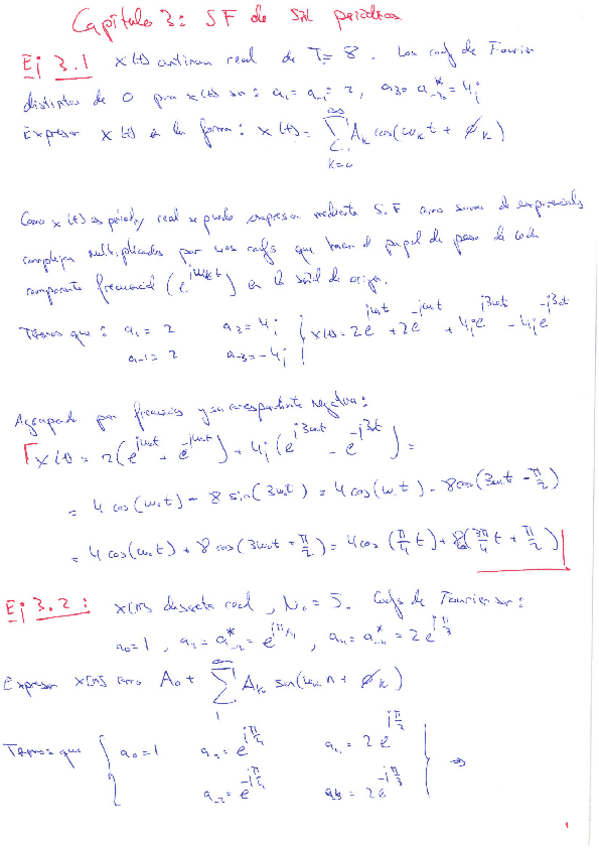 Capítulo 3: SF de Sñl periódicas.
Ej 3.1 x(t) continua real de T= 8. Los coefs de Fourier
distintos de 0 para x(t) son: a₁ = a₋₁ = 2, a₃ = a₋₃* = 4j
Expresar x(t) en la forma: x(t) = ∑_{k=0}^{∞} A_k cos(ω_k t + φ_k)
Como x(t) es periód y real se puede expresar mediante S.F como suma de exponenciales
complejas multiplicadas por unos coefs que hacen el papel de peso de cada
componente frecuencial (e^{jω₀kt}) en la señal de origen.
Tenemos que: a₁ = 2 a₃ = 4j } x(t) = 2e^{jω₀t} + 2e^{-jω₀t} + 4je^{j3ω₀t} - 4je^{-j3ω₀t}
a₋₁ = 2 a₋₃ = -4j
Agrupando por frecuencias y su correspondiente negativa:
x(t) = 2(e^{jω₀t} + e^{-jω₀t}) + 4j(e^{j3ω₀t} - e^{-j3ω₀t}) =
= 4 cos(ω₀t) - 8 sin(3ω₀t) = 4 cos(ω₀t) - 8 cos(3ω₀t - π/2)
= 4 cos(ω₀t) + 8 cos(3ω₀t + π/2) = 4 cos(π/4 t) + 8 cos(3π/4 t + π/2)
Ej 3.2: x[n] discreta real, N₀ = 5. Coefs de Fourier son:
a₀ = 1, a₂ = a₋₂* = e^{jπ/4}, a₄ = a₋₄* = 2e^{jπ/3}
Expresar x[n] como A₀ + ∑_{1}^{∞} A_k sin(ω_k n + φ_k)
Tenemos que { a₀ = 1 a₂ = e^{jπ/4} a₄ = 2e^{jπ/3}
a₋₂ = e^{-jπ/4} = 2e^{-jπ/3} } ⇒
1